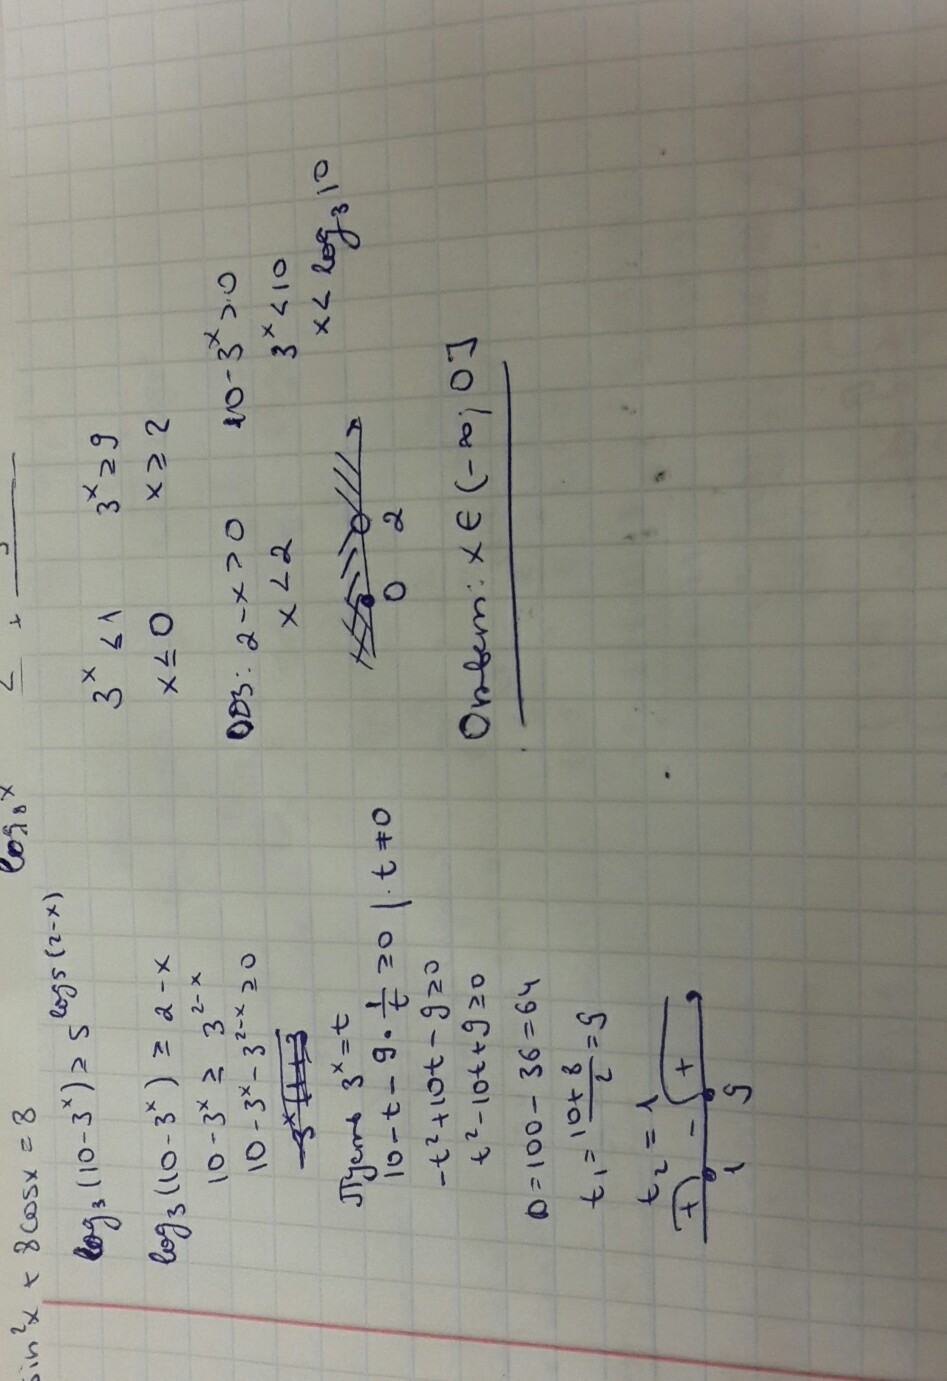 sin²x + 8cosx = 8
log₈x
log₃(10-3ˣ) ≥ 5^log₅(2-x)
log₃(10-3ˣ) ≥ 2-x
10-3ˣ ≥ 3²⁻ˣ
10-3ˣ-3²⁻ˣ ≥ 0
Пусть 3ˣ=t
10-t-9·1/t ≥0 |·t≠0
-t²+10t-9≥0
t²-10t+9≥0
D=100-36=64
t₁=(10+8)/2=9
t₂=1
+ - +
1 9
3ˣ≤1 3ˣ≥9
x≤0 x≥2
ОДЗ: 2-x>0 10-3ˣ>0
x<2 3ˣ<10
x<log₃10
0 2
Ответ: x∈(-∞; 0]